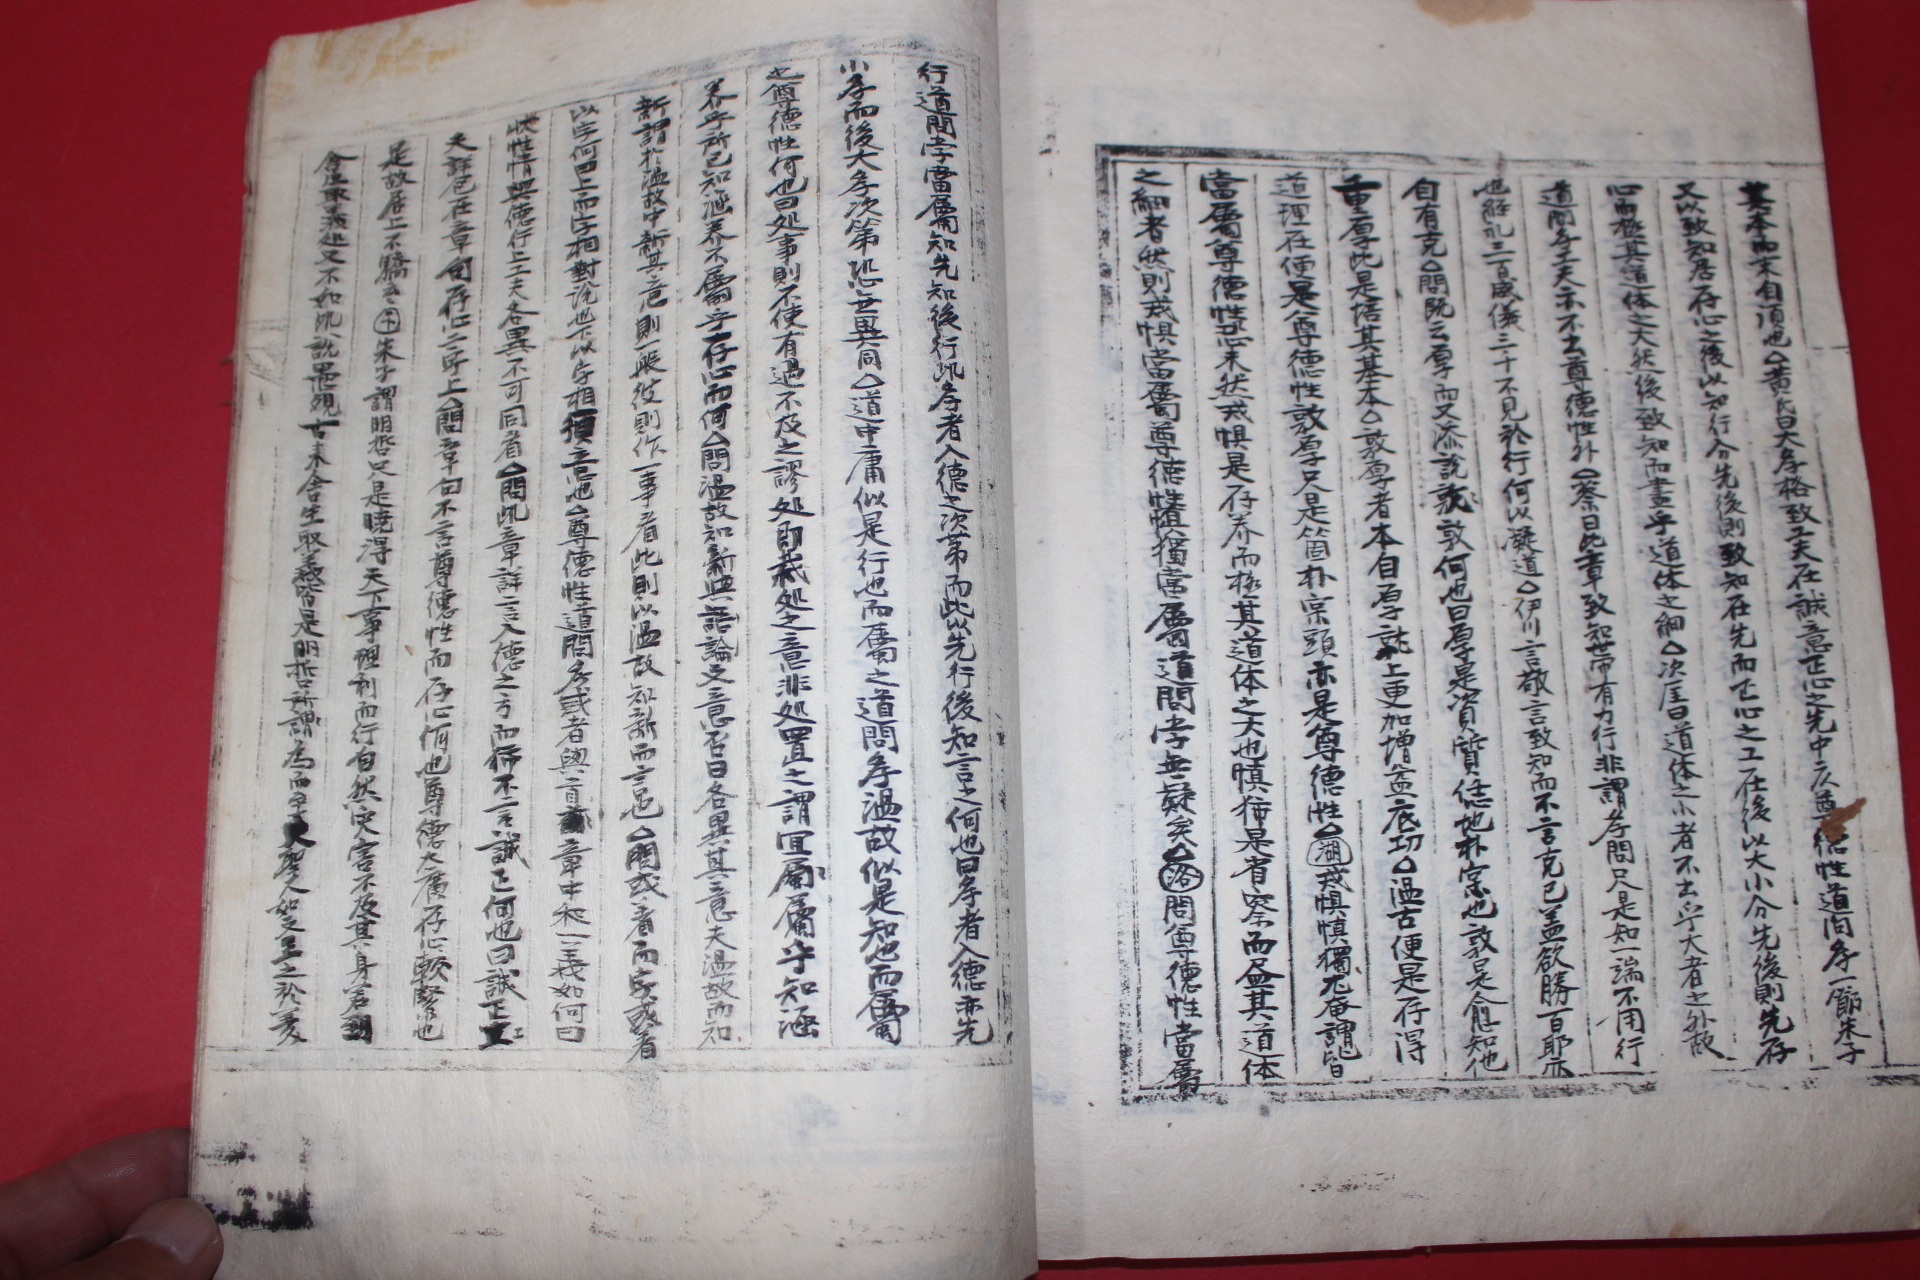 基本而末自須也△黃氏曰大孝格致工夫在誠意正心之先中尊德性道問孝一節朱子
又以致知居存心之後以知行分先後則致知在先而正心之工在後以大小分先後則先存
心而極其道体之大然後致知而盡乎道体之細△次崖曰道体之小者不出乎大者之外故
道問孝工夫亦不出尊德性外△蔡曰此章致知世帶有力行非謂孝問只是知一端不用行
也經礼三百威儀三千不見於行何以凝道△伊川言敬言致知而不言克己盖欲勝百邪
自有克△問既云厚而又添說敦何也曰厚是資質恁地朴实也敦是愈知他
重厚此是培其基本△敦厚者本自厚就上更加增益底切△温古便是存得
道理在便是尊德性敦厚只是箇朴宗頭亦是尊德性△湖戒惧慎獨尤庵謂皆
當屬尊德性恐未然戒惧是存养而極其道体之大也慎独是省察而盡其道体
之細者然則戒惧當屬尊德性慎獨當屬道問孝無疑矣△洛問尊德性當屬
行道問孝當屬知先知後行此孝者入德之次第而此以先行後知言之何也曰孝者入德亦先
小孝而後大孝次第恐無異同△道中庸似是行也而屬之道問孝温故似是知也而屬
之尊德性何也曰処事則不使有過不及之謬処即裁処之意非処置之謂宜屬屬乎知涵
养乎所已知涵养不屬乎存心而何△問温故知新與語論文意否曰各異其意夫温故而知
新謂於温故中新其意則一般彼則作一事看此則以温故知新而言也△問或者而字或着
以字何曰上而字相對說也下以字相須意也△尊德性道問孝或者與首章中和一義如何曰
性情與德行上工夫各異不可同看△問此章詳言入德之方而獨不言誠正何也曰誠正工
夫詳包在章句存心二字上△問章句不言尊德性而存心何也尊德大廣存心較緊也
是故居上不驕 朱子謂明哲只是曉得天下事理利而行自然灾害不及其身若
舍生取義処又不如此說愚覸古来舍生取義皆是明哲所謂為而